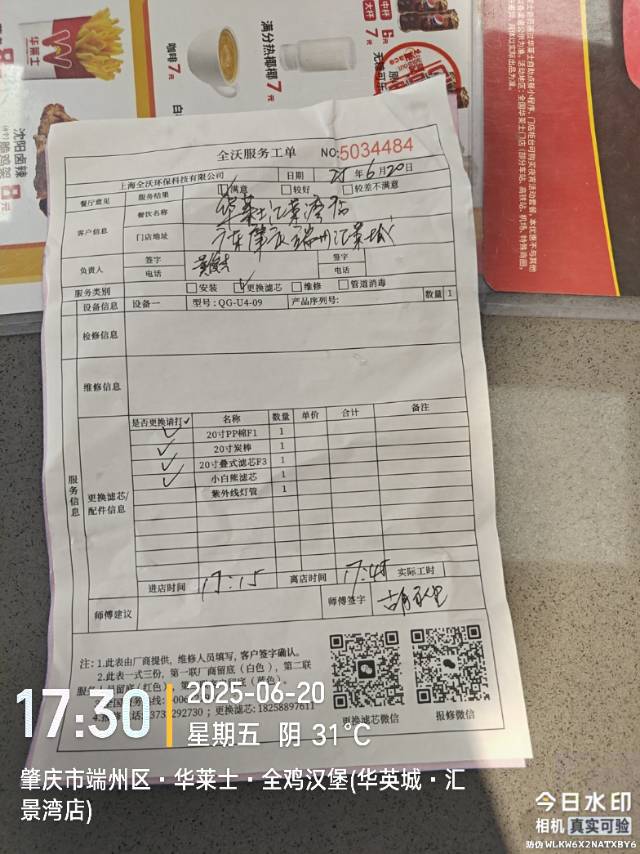 华莱士
咖啡7元
满分热椰椰
7元
大杯
中杯
6元
7元
沈阳卤辣
脆鸡架
全沃服务工单 NO:5034484
上海全沃环保科技有限公司 日期 25年6月20日
餐厅意见 服务结果 满意 较好 较差不满意
客户信息 餐饮名称 华莱士汇景湾店
门店地址 广东肇庆端州汇景城
负责人 签字 签字
电话 电话
服务类别 安装 更换滤芯 维修 管道消毒
设备信息 设备一 型号:QG-U4-09 产品序列号: 数量 1
检修信息
维修信息
服务信息
更换滤芯/配件信息
是否更换请打✓ 名称 数量 单价 合计 备注
✓ 20寸PP棉F1 1
✓ 20寸炭棒 1
✓ 20寸叠式滤芯F3 1
✓ 小白熊滤芯 1
紫外线灯管 1
进店时间 17:15 离店时间 17:45 实际工时
师傅建议 师傅签字
注:1.此表由厂商提供,维修人员填写,客户签字确认。
2.此表一式三份,第一联厂商留底(白色),第二联
更换滤芯:18258897611
更换滤芯微信 报修微信
17:30
2025-06-20
星期五 阴 31°C
肇庆市端州区·华莱士·全鸡汉堡(华英城·汇
景湾店)
今日水印
相机 真实可验
防伪 WLKW6X2NATXBY6